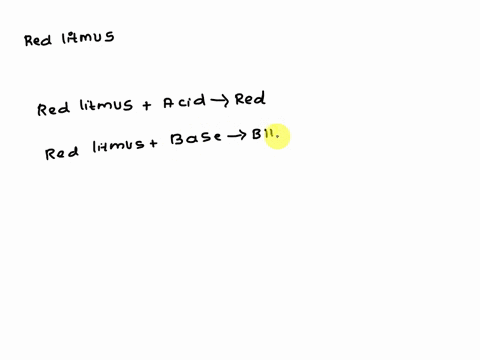 Red litmus
Red litmus + Acid → Red
Red litmus + Base →